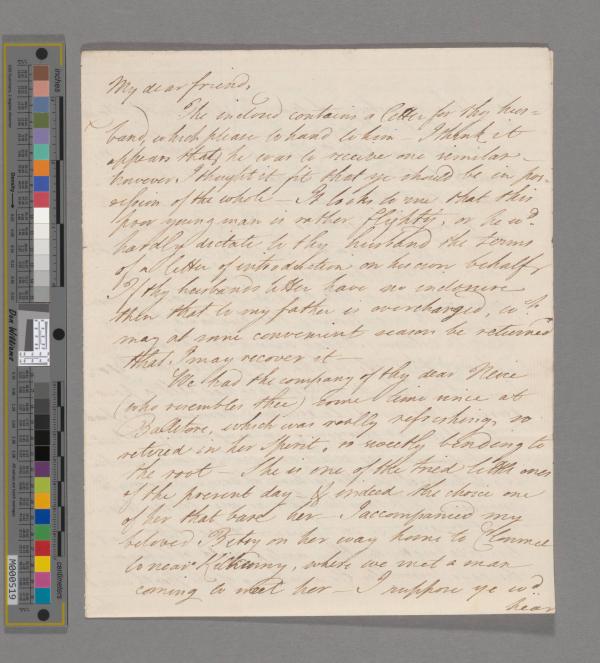 My dear friend,
The inclosed contains a letter for thy hus=
band, which please to hand to him - I think it
appears that he was to receive one similar -
however I thought it fit that ye should be in pos=
session of the whole - It looks to me that this
poor young man is rather flighty, or he wd.
hardly dictate to thy husband the terms
of a letter of introduction on his own behalf
If thy husbands letter have no inclosure
then that to my father is overcharged, wch.
may at some convenient season be returned
that I may recover it -
We had the company of thy dear Niece
(who resembles thee) some time since at
Ballitore, which was really refreshing, so
retired in her Spirit, so sweetly bending to
the root - She is one of the tried little ones
of the present day - & indeed the choice one
of her that bare her - I accompanied my
beloved Betsy on her way home to Clonmel
to near Kilkenny, where we met a man
coming to meet her - I suppose ye wd.
hear
inches
centimetres
Don Williams
M000519